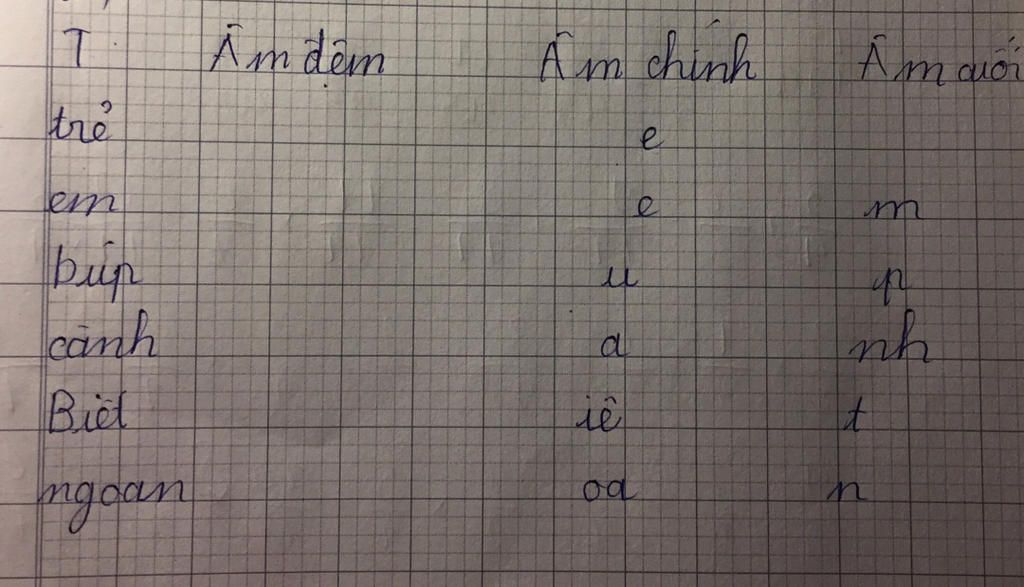 T. Âm đệm Âm chính Âm cuối
trẻ e
em e m
búp u p
cành a nh
Biết iê t
ngoan oa n